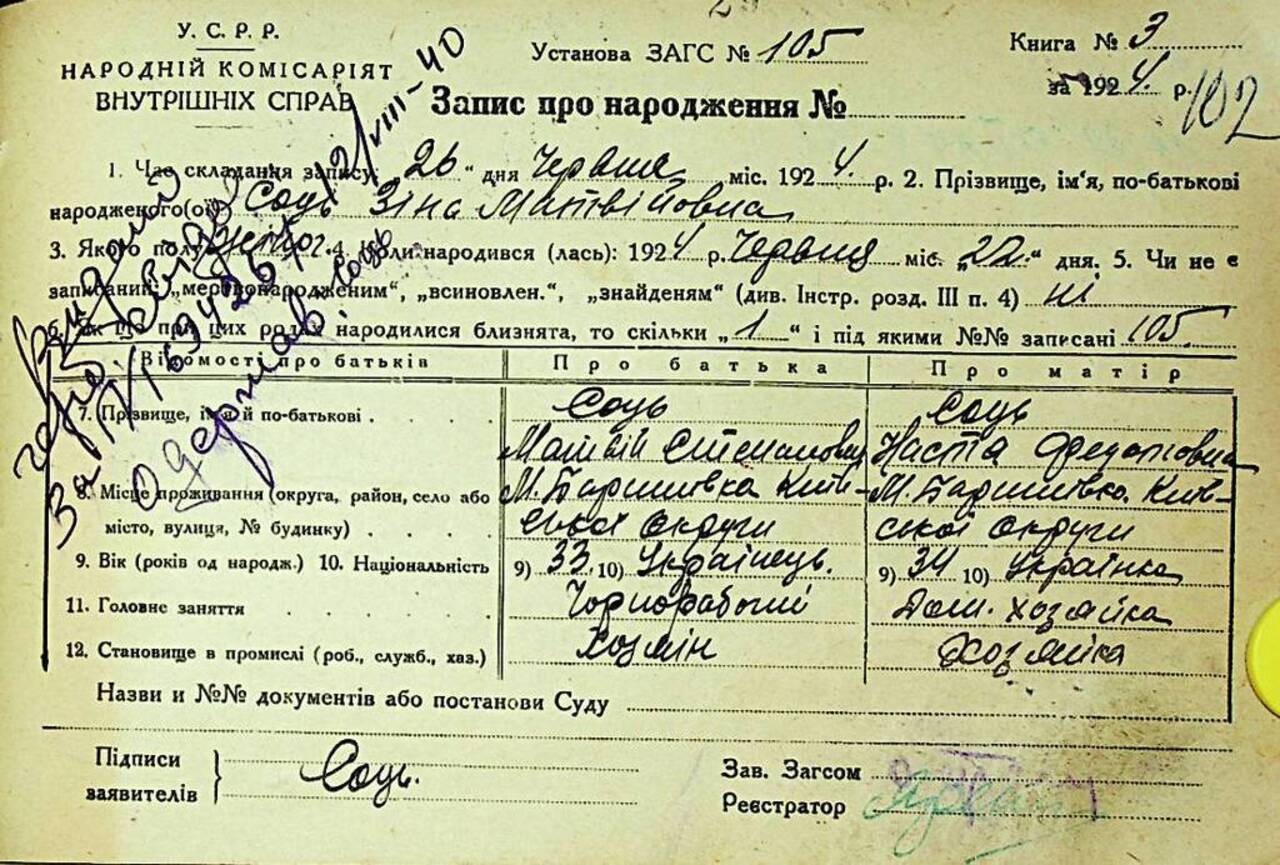 У. С. Р. Р.
НАРОДНІЙ КОМІСАРІЯТ
ВНУТРІШНІХ СПРАВ
Установа ЗАГС № 105
Книга № 3
за 1924 р.
102
Запис про народження №
1. Час складання запису: „26“ дня Червня міс. 1924 р. 2. Прізвище, ім'я, по-батькові
народженого(ої) Соць Зіна Матвійовна
3. Якого полу жіноч. 4. Коли народився (лась): 1924 р. Червня міс. „22“ дня. 5. Чи не є
записаний: „мертвонародженим“, „всиновлен.“, „знайденям“ (див. Інстр. розд. III п. 4) ні
6. Як що при цих родах народилися близнята, то скільки „1“ і під якими №№ записані 105
Відомості про батьків Про батька Про матір
7. Прізвище, ім'я й по-батькові Соць Соць
Матвій Степанович Наста Федотовна
8. Місце проживання (округа, район, село або М. Баришівка Київ- М. Баришівка Київ-
місто, вулиця, № будинку) ської округи ської округи
9. Вік (років од народж.) 10. Національність 9) 33 10) Українець. 9) 34 10) Українка
11. Головне заняття Чорнорабочий Дом. хозяйка
12. Становище в промислі (роб., служб., хаз.) Хозяїн Хозяйка
Назви и №№ документів або постанови Суду
Підписи
заявителів } Соць.
Зав. Загсом
Реєстратор
12/VIII-40
За
одержав: Соць